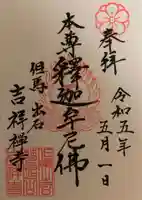 奉拝
令和五年
五月一日
本尊釋迦牟尼佛
但馬 出石
吉祥禅寺